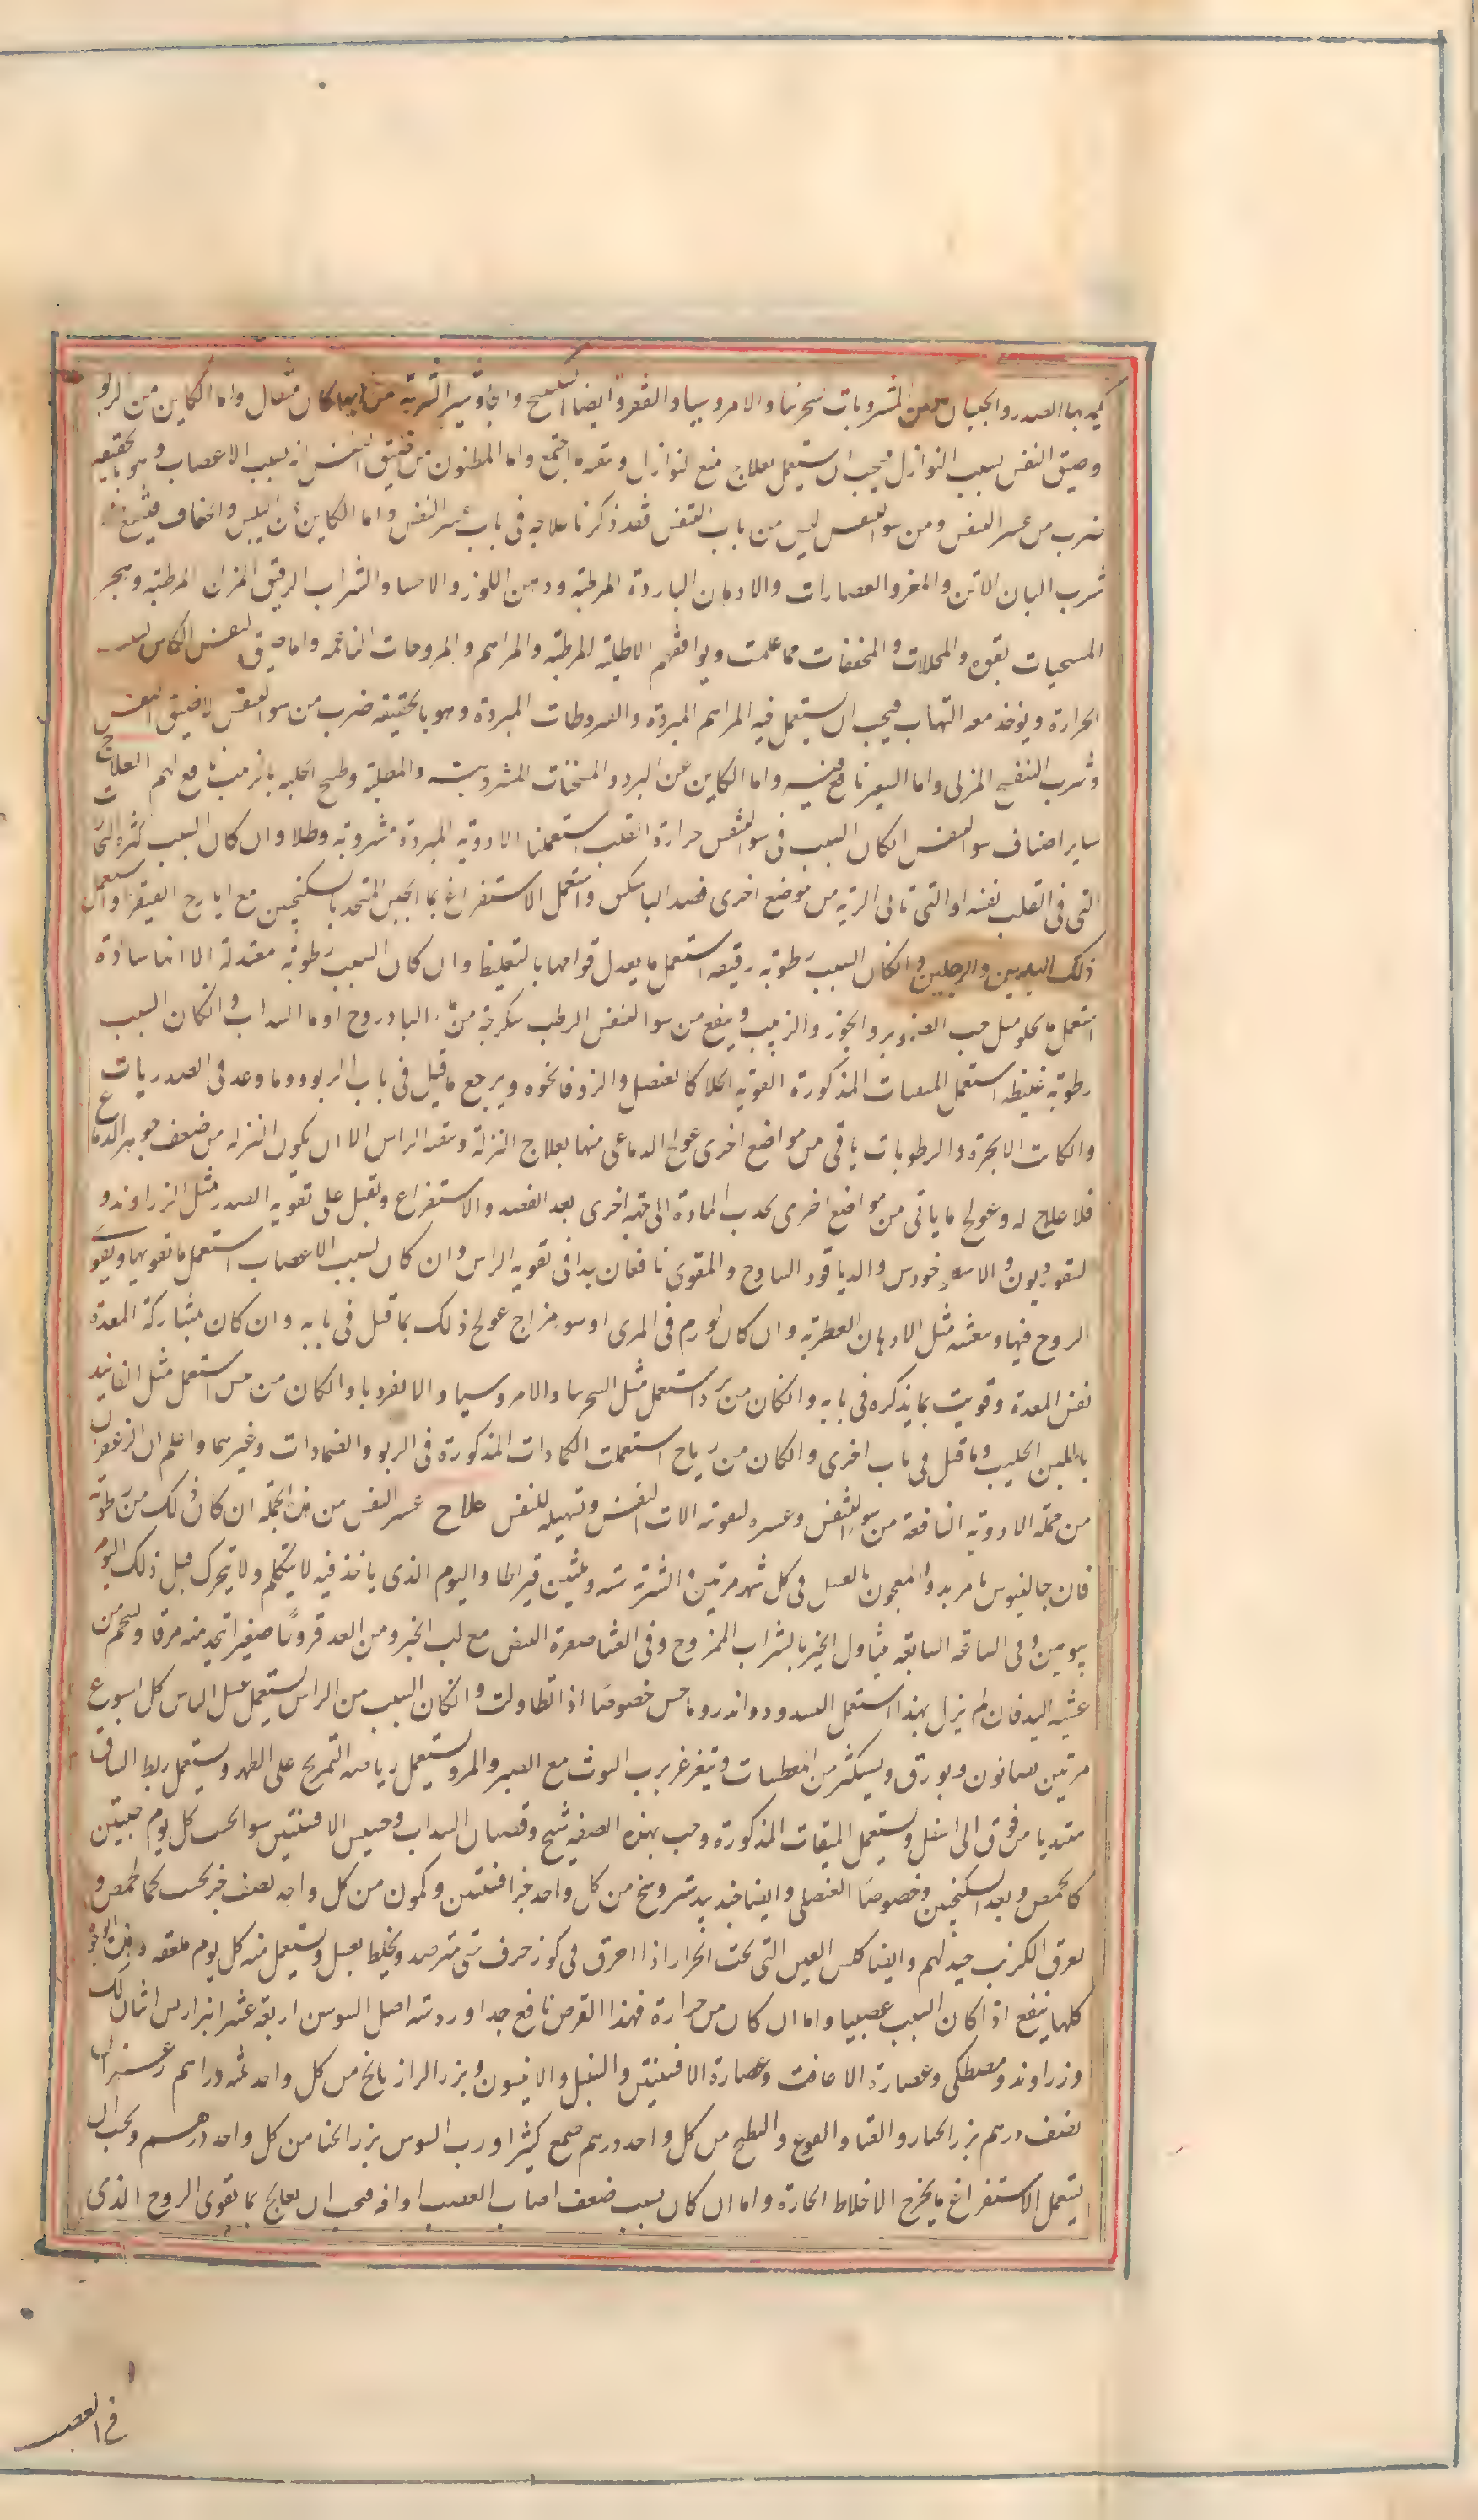 يكمد بها الصدر والجنبان ومن المشروبات سجرنيا والامروسيا والقفر وايضا السكبينج والجاوشير الشربة من ايهما كان مثقال واما الكاين من الربو
وضيق النفس بسبب النوازل فيجب ان يستعمل بعلاج منع النوازل وتنقيه ما اجتمع واما المظنون من ضيق النفس انه بسبب الاعصاب وهو بالحقيقه
ضرب من عسر النفس ومن سو النفس ليس من باب النفس فقد ذكرنا علاجه فى باب عسر النفس واما الكاين عن اليبس والخفاف فينفع منه
شرب البان الاتن والمعز والعصارات والادهان الباردة المرطبة ودهن اللوز والاحسا والشراب الرقيق المزاج المرطبة وهجر
المسخنات بقوه والمحللات والمجففات مما علمت ويوافقهم الاطلية المرطبة والمراهم والمروخات الناعمه واما ضيق النفس الكاين بسبب
الحرارة ويوخذ معه التهاب فيجب ان يستعمل فيه المراهم المبردة والقيروطات المبردة وهو بالحقيقه ضرب من سو النفس لا ضيق النفس
وشرب البنفسج المربى واما الشعير نافع فيه واما الكاين عن البرد والمسخنات المشروبة والمطلية وطبيخ الحلبه بالزبيب نافع لهم العلاج
ساير اصناف سو النفس ان كان السبب فى سو النفس حرارة القلب استعملنا الادوية المبردة مشروبة وطلا وان كان السبب كثرة البخارات
التى فى القلب نفسه او التى تاتى الرية من موضع اخرى فصد الباسليق واستعمل الاستفراغ بما الجبن المتخذ بالسكنجبين مع ايارج الفيقرا واستعمل
ذلك اليدين والرجلين وان كان السبب رطوبة رقيقه استعمل ما يعدل قوامها بالتغليظ وان كان السبب رطوبة معتدلة الا انها سادة
استعمل ما يجلو مثل حب الصنوبر والجوز والزبيب وينفع من سو النفس الرطب سكرجة من ما البادروج او ما السداب وان كان السبب
رطوبة غليظه استعمل المنقيات المذكورة القوية الجلا كالعنصل والزوفا ونحوه ويرجع ما قيل فى باب الربو وما وعد فى الصدريات
وان كانت الابخرة والرطوبات ياتى من مواضع اخرى عولج الدماغى منها بعلاج النزلة وتنقية الراس الا ان يكون النزله من ضعف جوهر الدماغ
فلا علاج له وعولج ما ياتى من مواضع اخرى بجذب المادة الى جهة اخرى بعد الفصد والاستفراغ وتقبل على تقويه الصدر مثل الزراوند و
اسقورديون والاسطوخودس والدياقود الساذج والمقوى نافعان جدا فى تقويه الراس وان كان بسبب الاعصاب استعمل ما تقويها ويقوى
الروح فيها وينعشه مثل الادهان العطرية وان كان لورم فى المرى او سو مزاج عولج ذلك بما قيل فى بابه وان كان بمشاركة المعدة
نفض المعدة وقويت بما يذكره فى بابه وان كان من برد استعمل مثل السجرنيا والامروسيا والانقرديا وان كان من يبس استعمل مثل الفانيد
باللبن الحليب وما قيل فى باب اخرى وان كان من رياح استعملت الكمادات المذكورة فى الربو والضمادات وغيرهما واعلم ان الزعفران
من جملة الادوية النافعة من سو التنفس وعسره لتقوية الات النفس وتسهيله للنفس علاج عسر النفس من هذه الجملة ان كان ذلك من رطوبة
فان جالينوس يامر بدوا معجون بالعسل فى كل شهر مرتين الشربة ستة وثلثين قيراطا واليوم الذى ياخذ فيه لا يتكلم ولا يتحرك قبل ذلك اليوم
بيومين وفى الساعه السابعه يتناول الخبز بالشراب الممزوج وفى العشا صفرة البيض مع لب الخبز ومن الغد فروجا صغيرا يتخذ منه مرقا ويستحم من
عشية اليه فان لم يزل بهذا استعمل الفصد ودوا اندروماخس خصوصا اذا تطاولت وان كان السبب من الراس يستعمل غسل الراس كل اسبوع
مرتين بصابون وبورق ويستكثر من المعطسات ويتغرغر برب التوت مع الصبر والمر ويستعمل رياضه التمريخ على الظهر ويستعمل ربط الساق
مبتديا من فوق الى اسفل ويستعمل المنقيات المذكورة وحب بهذه الصفه شيح وقضبان السداب وحشيش الافسنتين سوا يحبب كل يوم حبتين
كالحمص وبعده السكنجبين وخصوصا العنصلى وايضا جندبيدستر وزرنيخ من كل واحد جزا افسنتين وكمون من كل واحد نصف جز يحبب كالحمص و
بعرق الكرنب جيد لهم وايضا كلس العيس التى تحت الجرار اذا احرق فى كوز خزف حتى يترمد ويخلط بعسل ويستعمل منه كل يوم ملعقه وهذه الوجوه
كلها ينفع اذا كان السبب عصبيا واما ان كان من حرارة فهذا القرص نافع جدا ورد ستة اصل السوسن اربعة عشر انبرباريس اثنان لك
وزراوند ومصطكى وعصارة الاغافت وعصارة الافسنتين والسنبل والانيسون وبزر الرازيانج من كل واحد ثلثه دراهم زعفران
نصف درهم بزر الخيار والقثا والقرع والبطيخ من كل واحد درهم صمغ كثيرا ورب السوس بزر الخشا من كل واحد درهم ويجب ان
يستعمل الاستفراغ بما يخرج الاخلاط الحارة واما ان كان بسبب ضعف اصاب العصب او افه فيجب ان يعالج بما تقوى الروح الذى
فى العصب